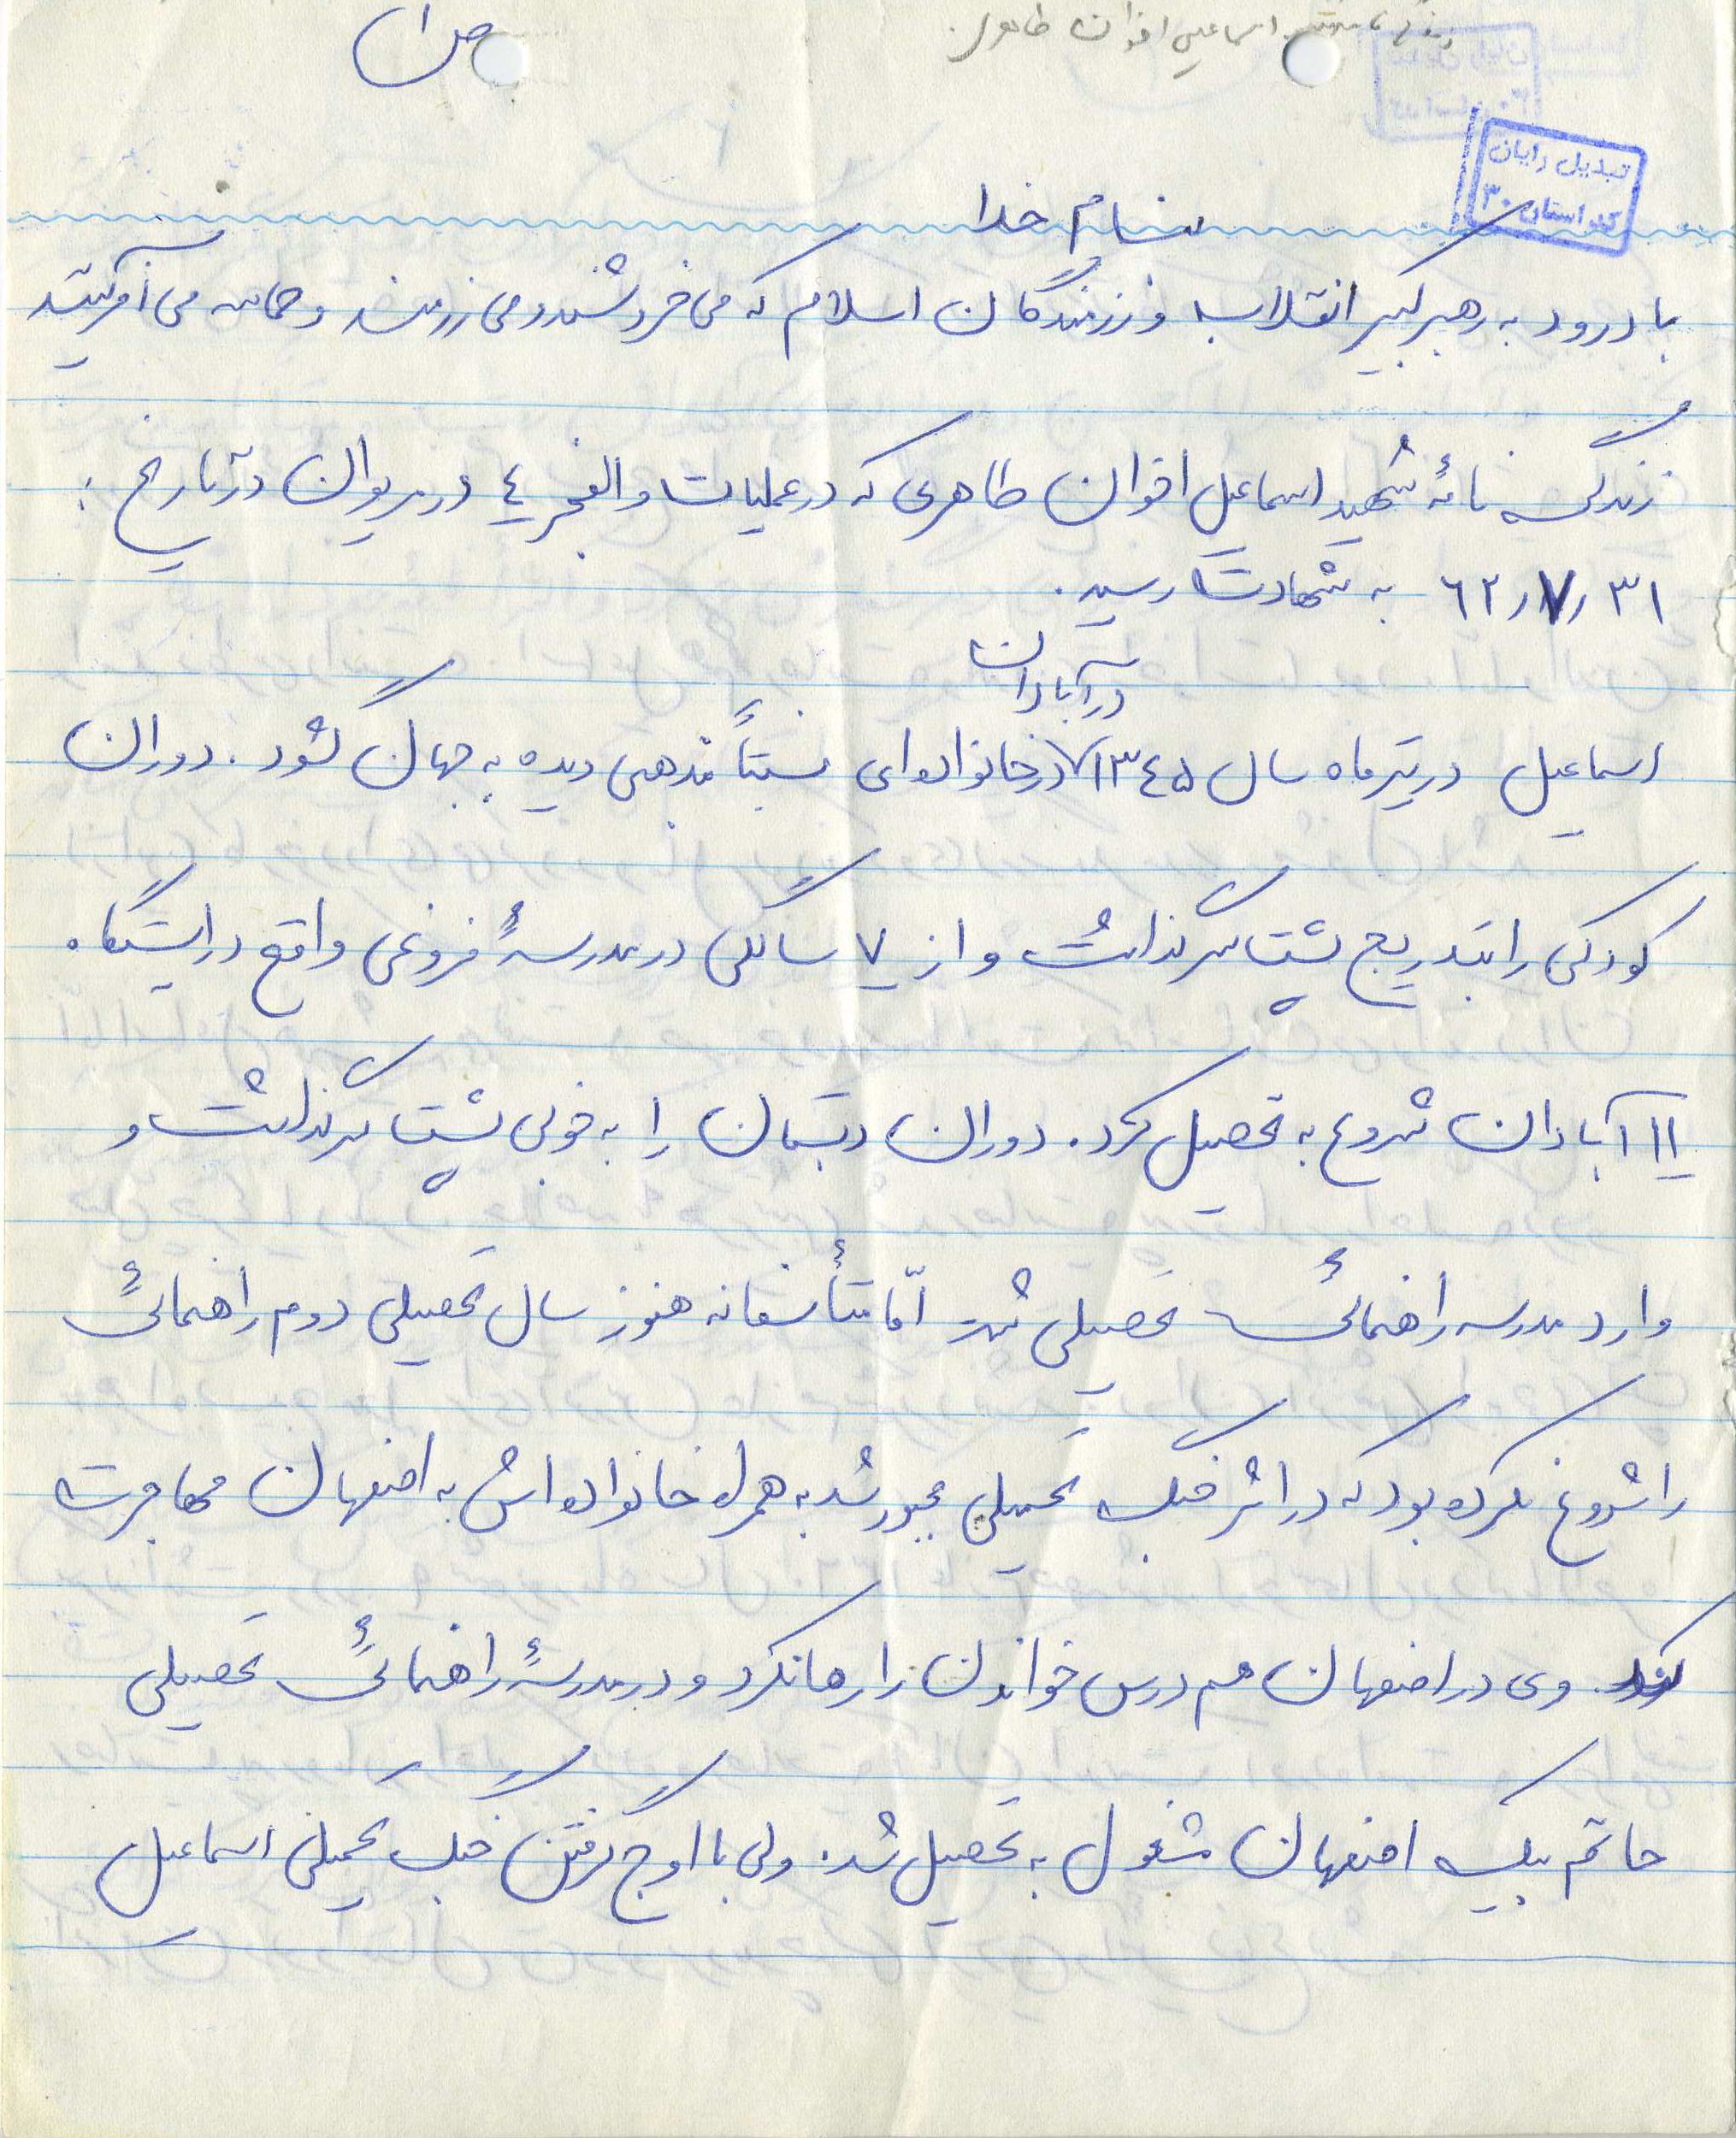 ص ۱
زندگی نامه شهید اسماعیل اخوان طاهری
تبدیل رایان
کد استان ۳۰
بنام خدا
با درود به رهبر کبیر انقلاب و رزمندگان اسلام که می خروشند و می رزمند و حماسه می آفرینند
زندگی نامهٔ شهید اسماعیل اخوان طاهری که در عملیات والفجر ٤ در مریوان در تاریخ :
۳۱ / ۷ / ٦۲ به شهادت رسید .
در آبادان
اسماعیل در تیر ماه سال ۱۳٤۵ در خانواده ای نسبتاً مذهبی دیده به جهان گشود . دوران
کودکی را بتدریج پشت سر گذاشت و از ۷ سالگی در مدرسهٔ فروغی واقع در ایستگاه
۱۱ آبادان شروع به تحصیل کرد . دوران دبستان را به خوبی پشت سر گذاشت و
وارد مدرسه راهنمائی تحصیلی شد امّا متأسفانه هنوز سال تحصیلی دوم راهنمائی
را شروع نکرده بود که در اثر جنگ تحمیلی مجبور شد به همراه خانواده اش به اصفهان مهاجرت
کند . وی در اصفهان هم درس خواندن را رها نکرد و در مدرسهٔ راهنمائی تحصیلی
حاتم بیک اصفهان مشغول به تحصیل شد . ولی با اوج گرفتن جنگ تحمیلی اسماعیل